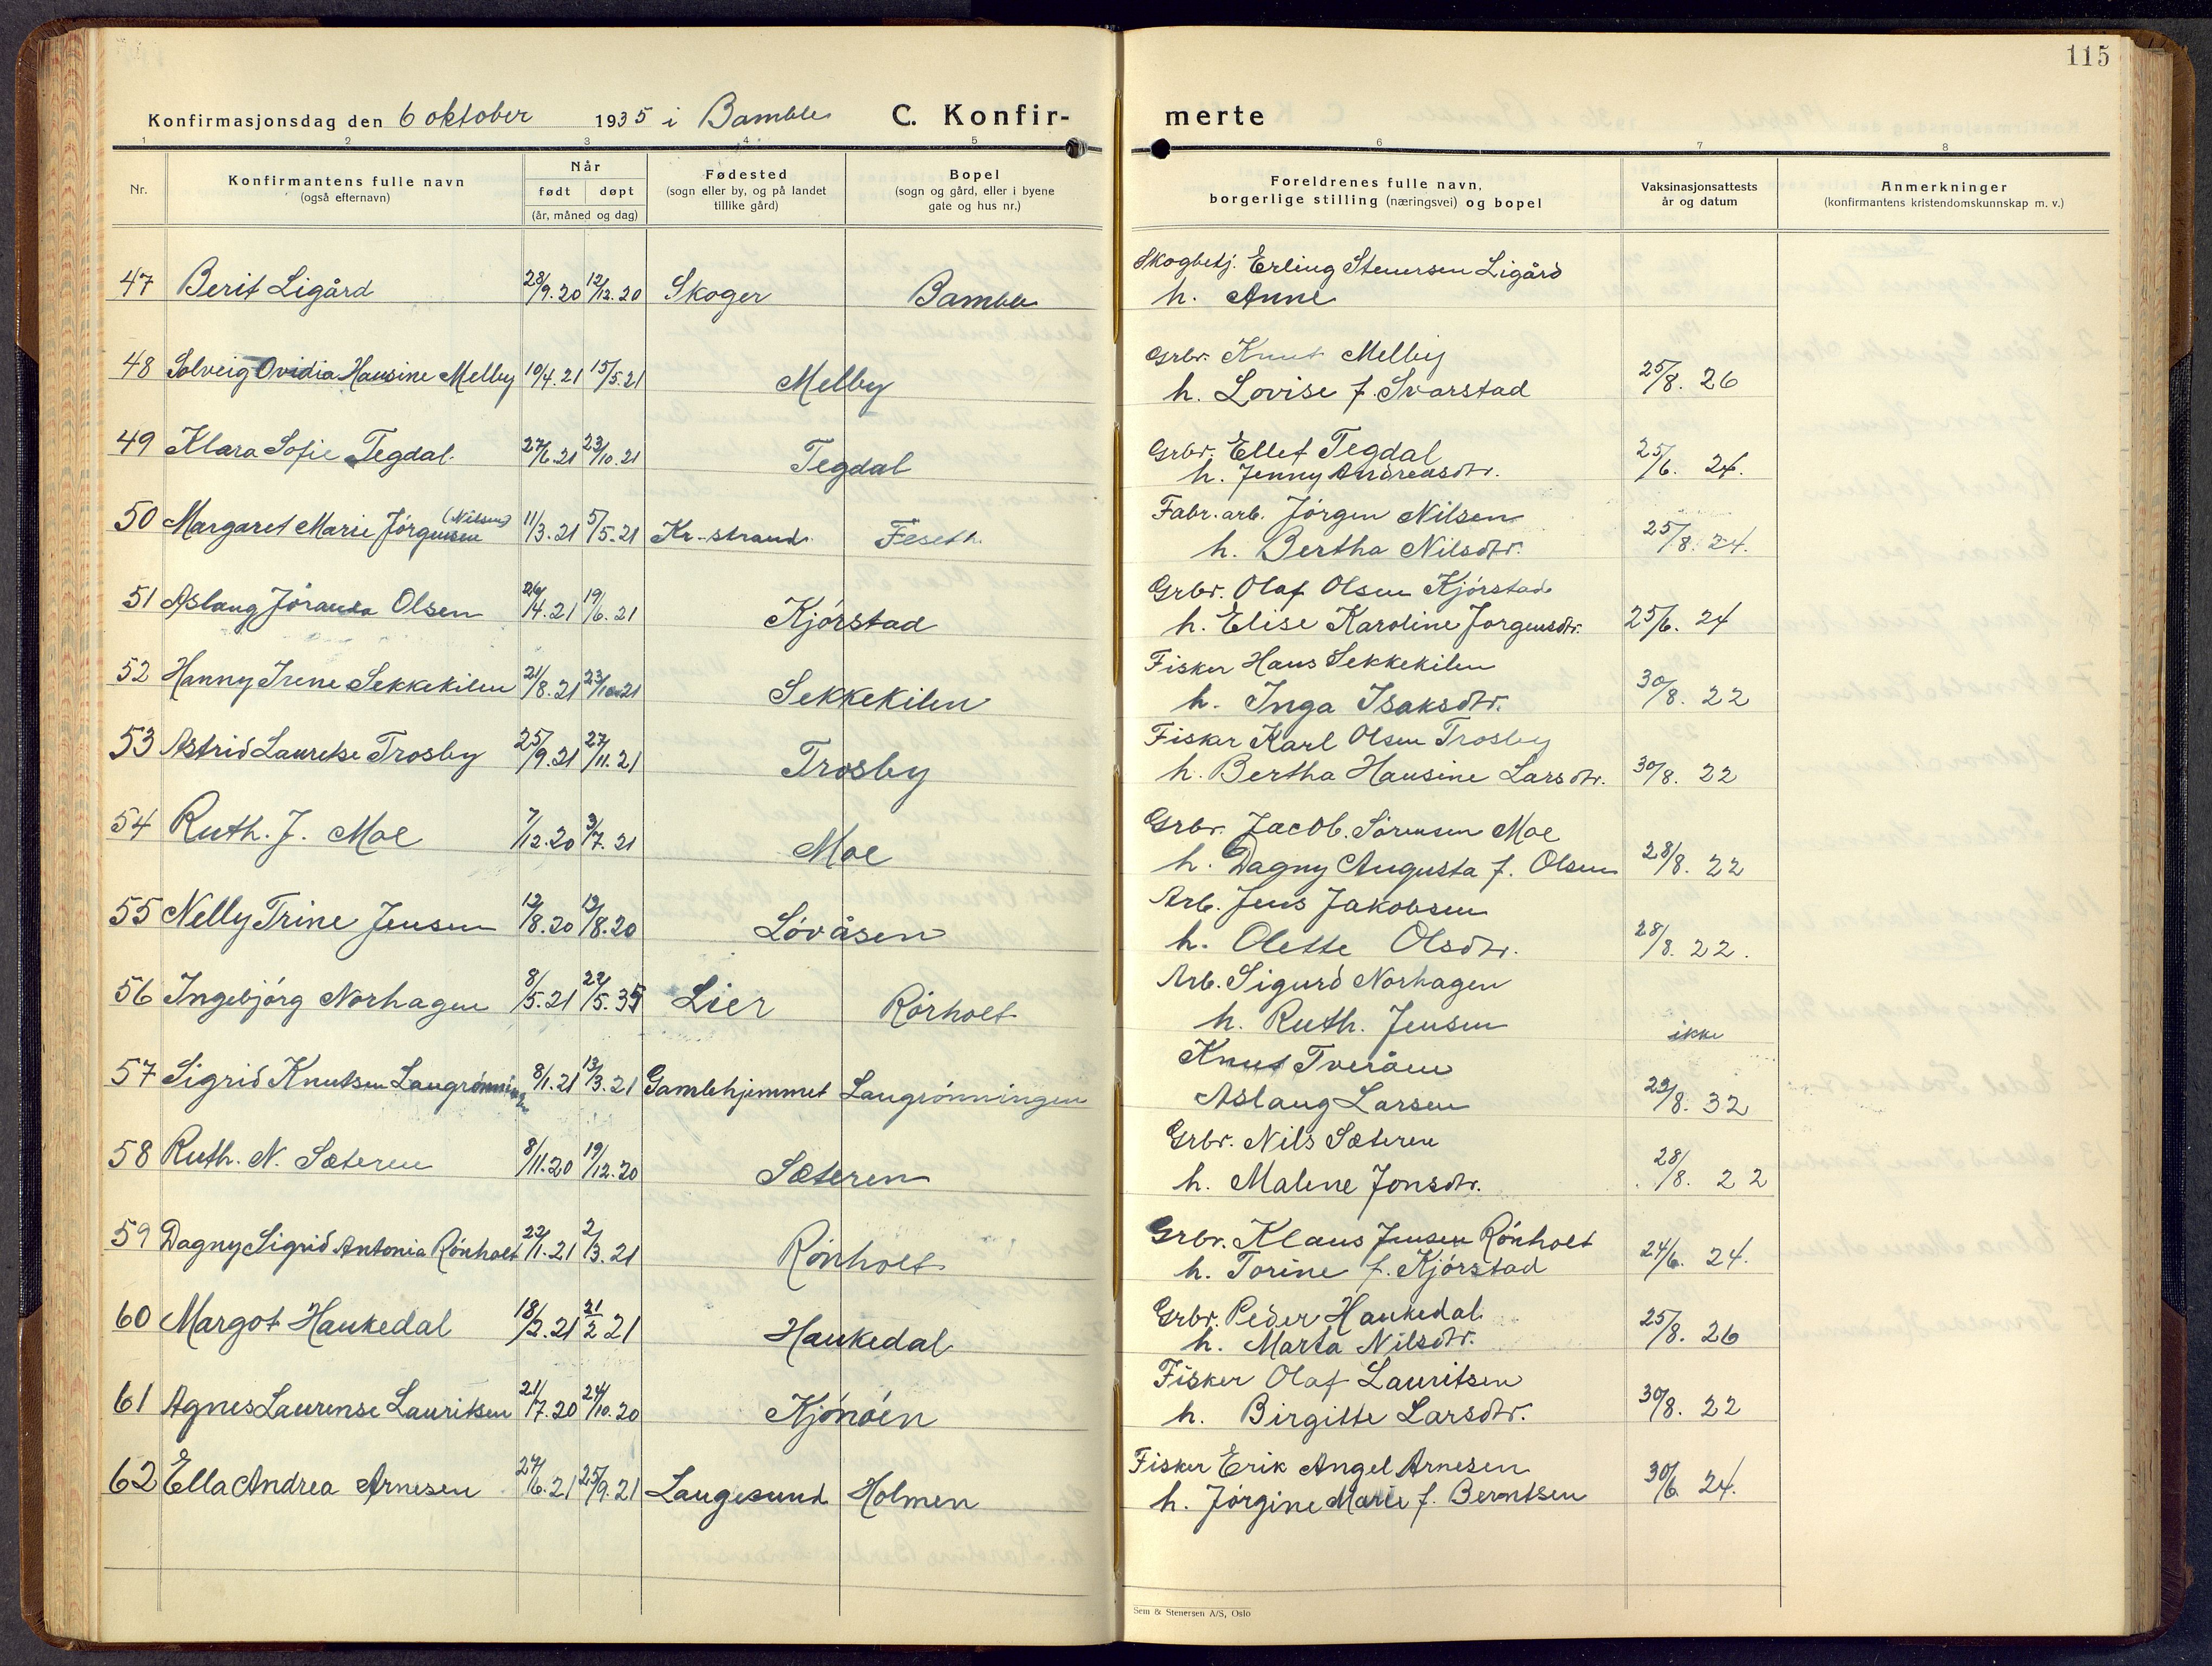 115
Konfirmasjonsdag den 6 oktober 1935 i Bamble C. Konfirmerte
1 2 3 4 5 6 7 8
Nr. Konfirmantens fulle navn (også efternavn) Når født døpt (år, måned og dag) Fødested (sogn eller by, og på landet tillike gård) Bopel (sogn og gård, eller i byene gate og hus nr.) Foreldrenes fulle navn, borgerlige stilling (næringsvei) og bopel Vaksinasjonsattests år og datum Anmerkninger (konfirmantens kristendomskunnskap m. v.)
47 Berit Ligård 28/9.20 12/12.20 Skoger Bamble Skogbetj. Erling Stenersen Ligård
h. Anne
48 Solveig Ovidia Hansine Melby 10/4.21 15/5.21 Melby Grbr. Knut Melby
h. Lovise f. Svarstad 25/8. 26
49 Klara Sofie Tegdal. 27/6.21 23/10.21 Tegdal Grbr. Ellef Tegdal
h. Jenny Andreasdtr. 25/6. 24.
50 Margaret Marie Jörgensen (Nilsen) 11/3.21 5/5.21 Kr.-strand. Feseth. Fabr. arb. Jörgen Nilsen
h. Bertha Nilsdtr. 25/8. 24.
51 Aslaug Jöranda Olsen 26/4.21 19/6.21 Kjörstad Grbr. Olaf Olsen Kjörstad
h. Elise Karoline Jorgensdtr. 25/6. 24
52 Hanny Irene Sekkekilen 21/8.21 23/10.21 Sekkekilen Fisker Hans Sekkekilen
h. Inga Isaksdtr. 30/8. 22
53 Astrid Lauretse Trosby 25/9.21 27/11.21 Trosby Fisker Karl Olsen Trosby
h. Bertha Hansine Larsdtr. 30/8. 22
54 Ruth. J. Moe 7/12.20 3/7.21 Moe Grbr. Jacob. Sörensen Moe
h. Dagny Augusta f. Olsen 28/8. 22
55 Nelly Trine Jensen 12/8.20 /8.20 Lövåsen Arb. Jens Jakobsen
h. Olette Olsdtr. 28/8. 22.
56 Ingebjörg Norhagen 8/5.21 22/5.35 Lier Rörholt Arb. Sigurd Norhagen
h. Ruth. Jensen ikke
57 Sigrid Knutsen Laugrönningen 8/1.21 13/3.21 Gamlehjemmet Laugrönningen Knut Tveråen
Aslaug Larsen 29/8. 32
58 Ruth. N. Sæteren 8/11.20 19/12.20 Sæteren Grbr. Nils Sæteren
h. Malene Jonsdtr. 28/8. 22
59 Dagny Sigrid Antonia Rönholt 22/1.21 2/3.21 Rönholt Grbr. Klaus Jensen Rönholt
h. Torine f. Kjörstad 24/6. 24.
60 Margot Haukedal 18/2.21 21/2 21 Haukedal Grbr. Peder Haukedal
h. Marta Nilsdtr. 25/8. 26
61 Agnes Laurense Lauritsen 21/7.20 24/10.20 Kjönöen Fisker Olaf Lauritsen
h. Birgitte Larsdtr. 30/8. 22
62 Ella Andrea Arnesen 24/6.21 25/9.21 Langesund Holmen Fisker Erik Angel Arnesen
h. Jörgine Marie f. Berntsen 30/6 24.
Sem & Stenersen A/S, Oslo